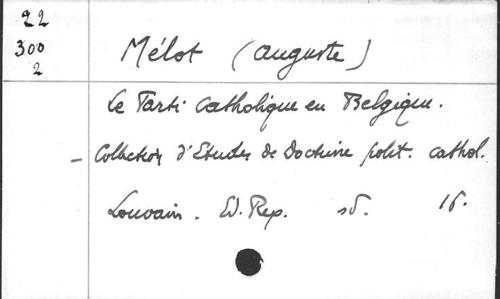 22
300
2
Mélot (Auguste)
Le Parti Catholique en Belgique.
- Collection d'Etudes de Doctrine polit. cathol.
Louvain. Ed. Rex. sd. 16.